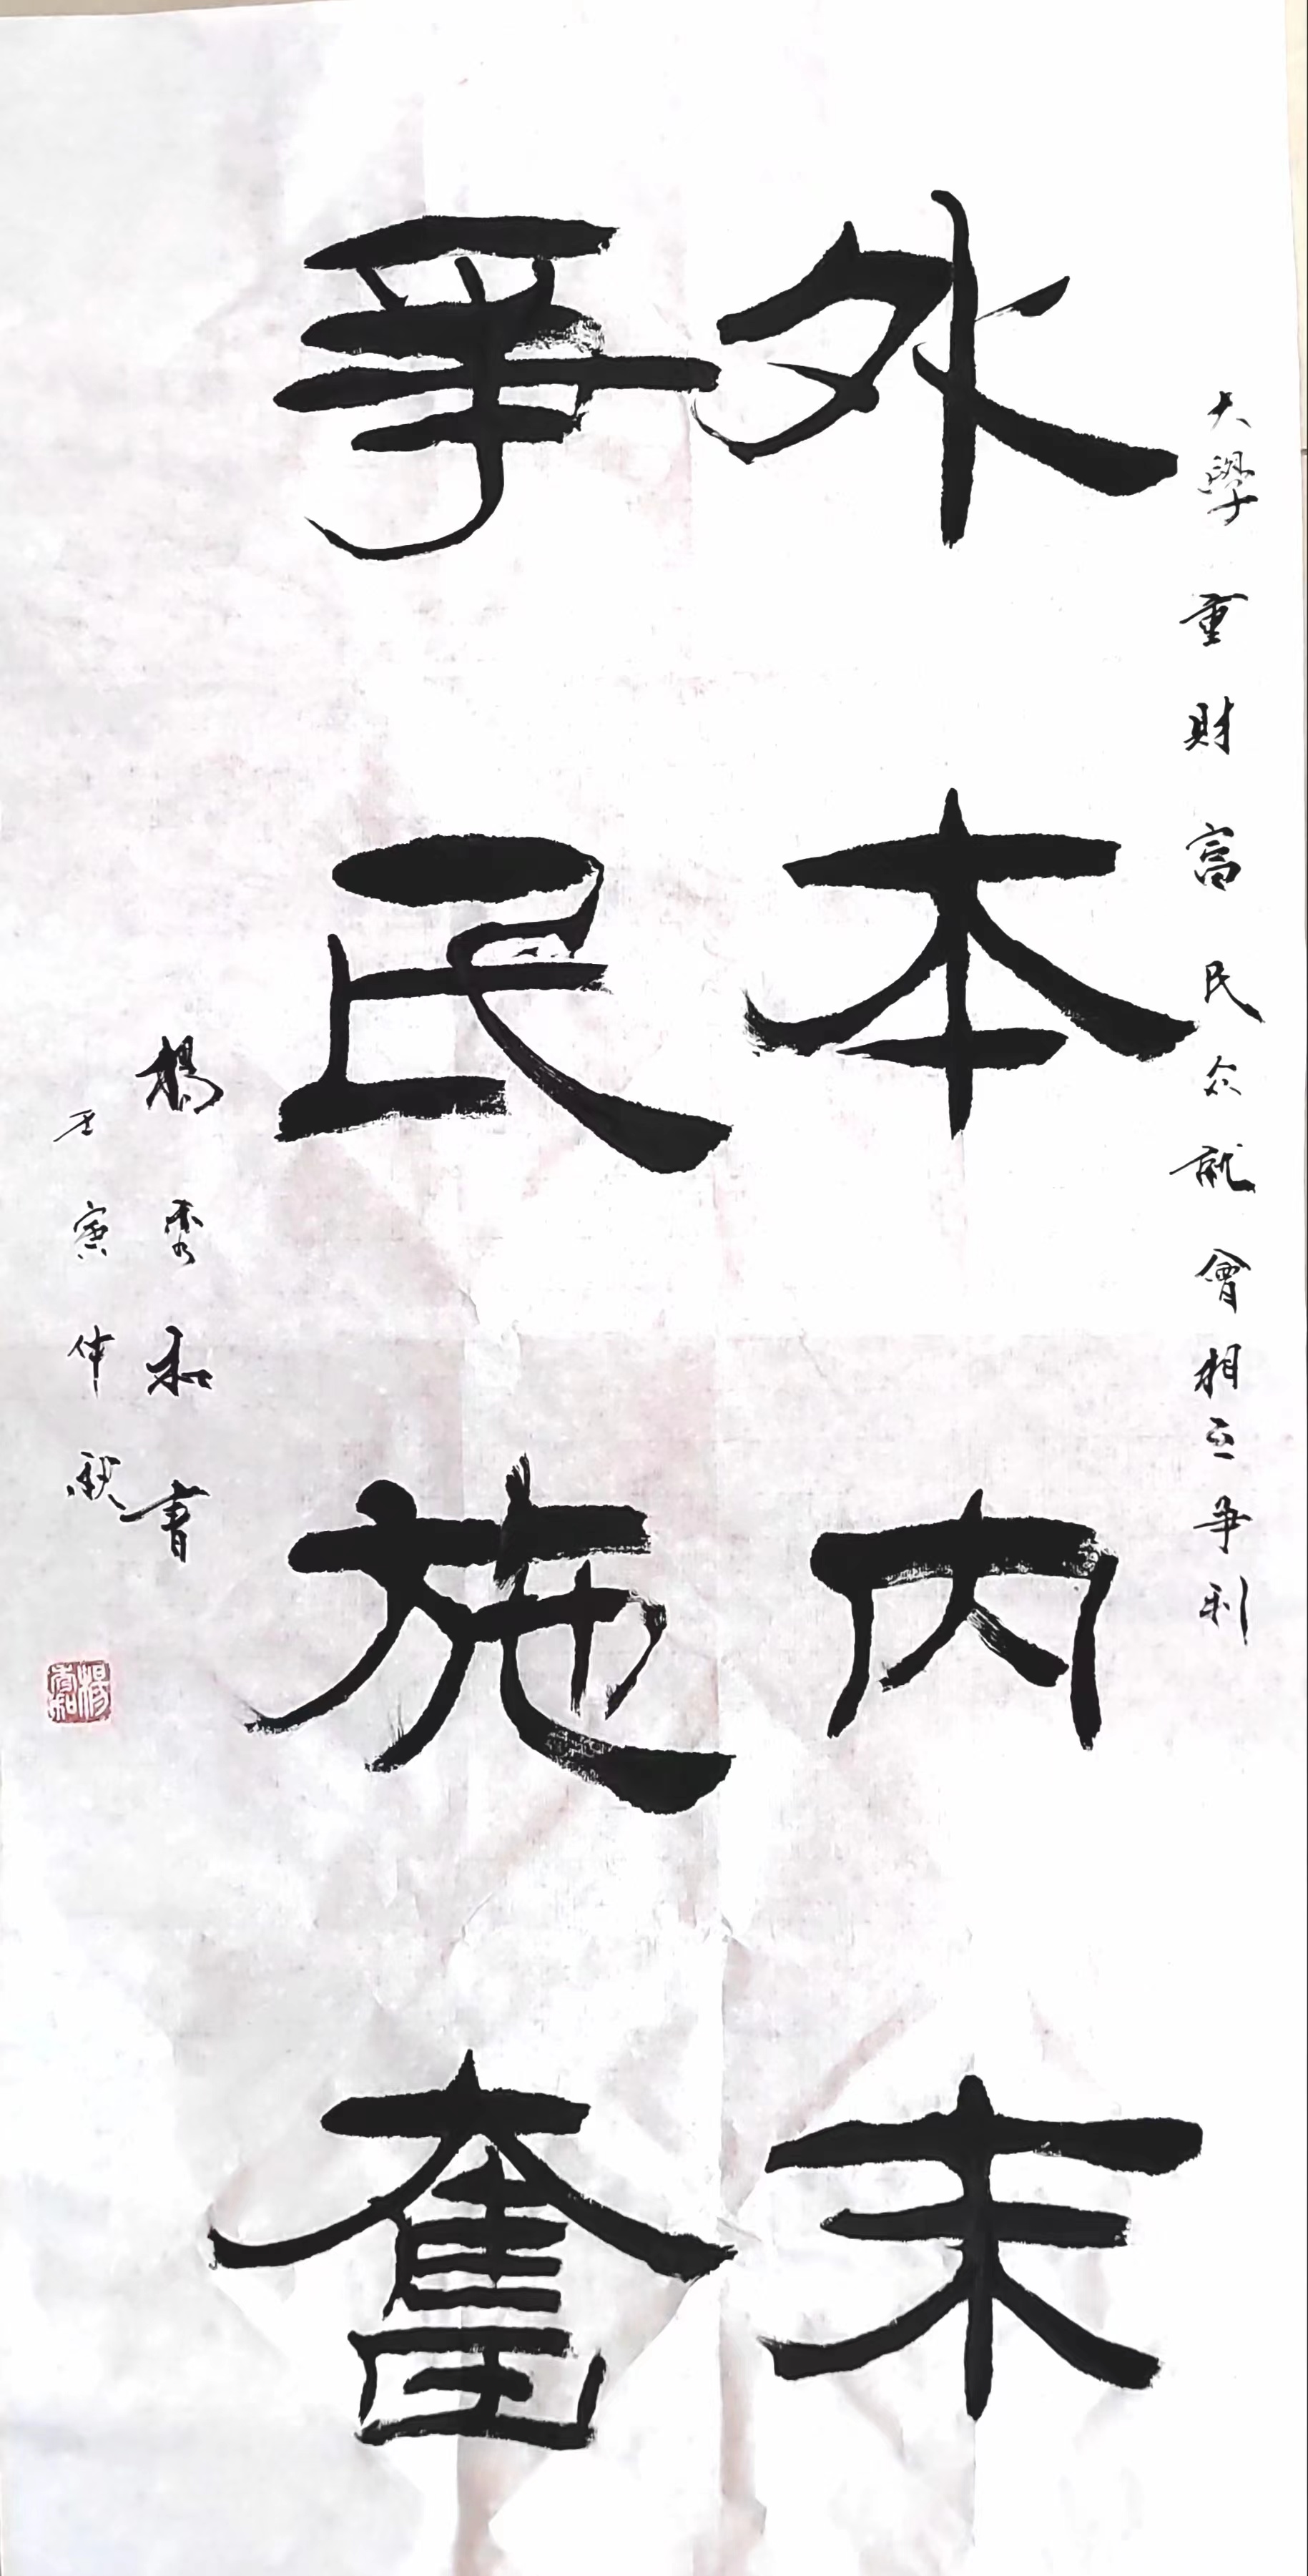 大學重財富民众就會相互争利
外本内末
爭民施奮
楊秀和書
壬寅仲秋
楊秀和